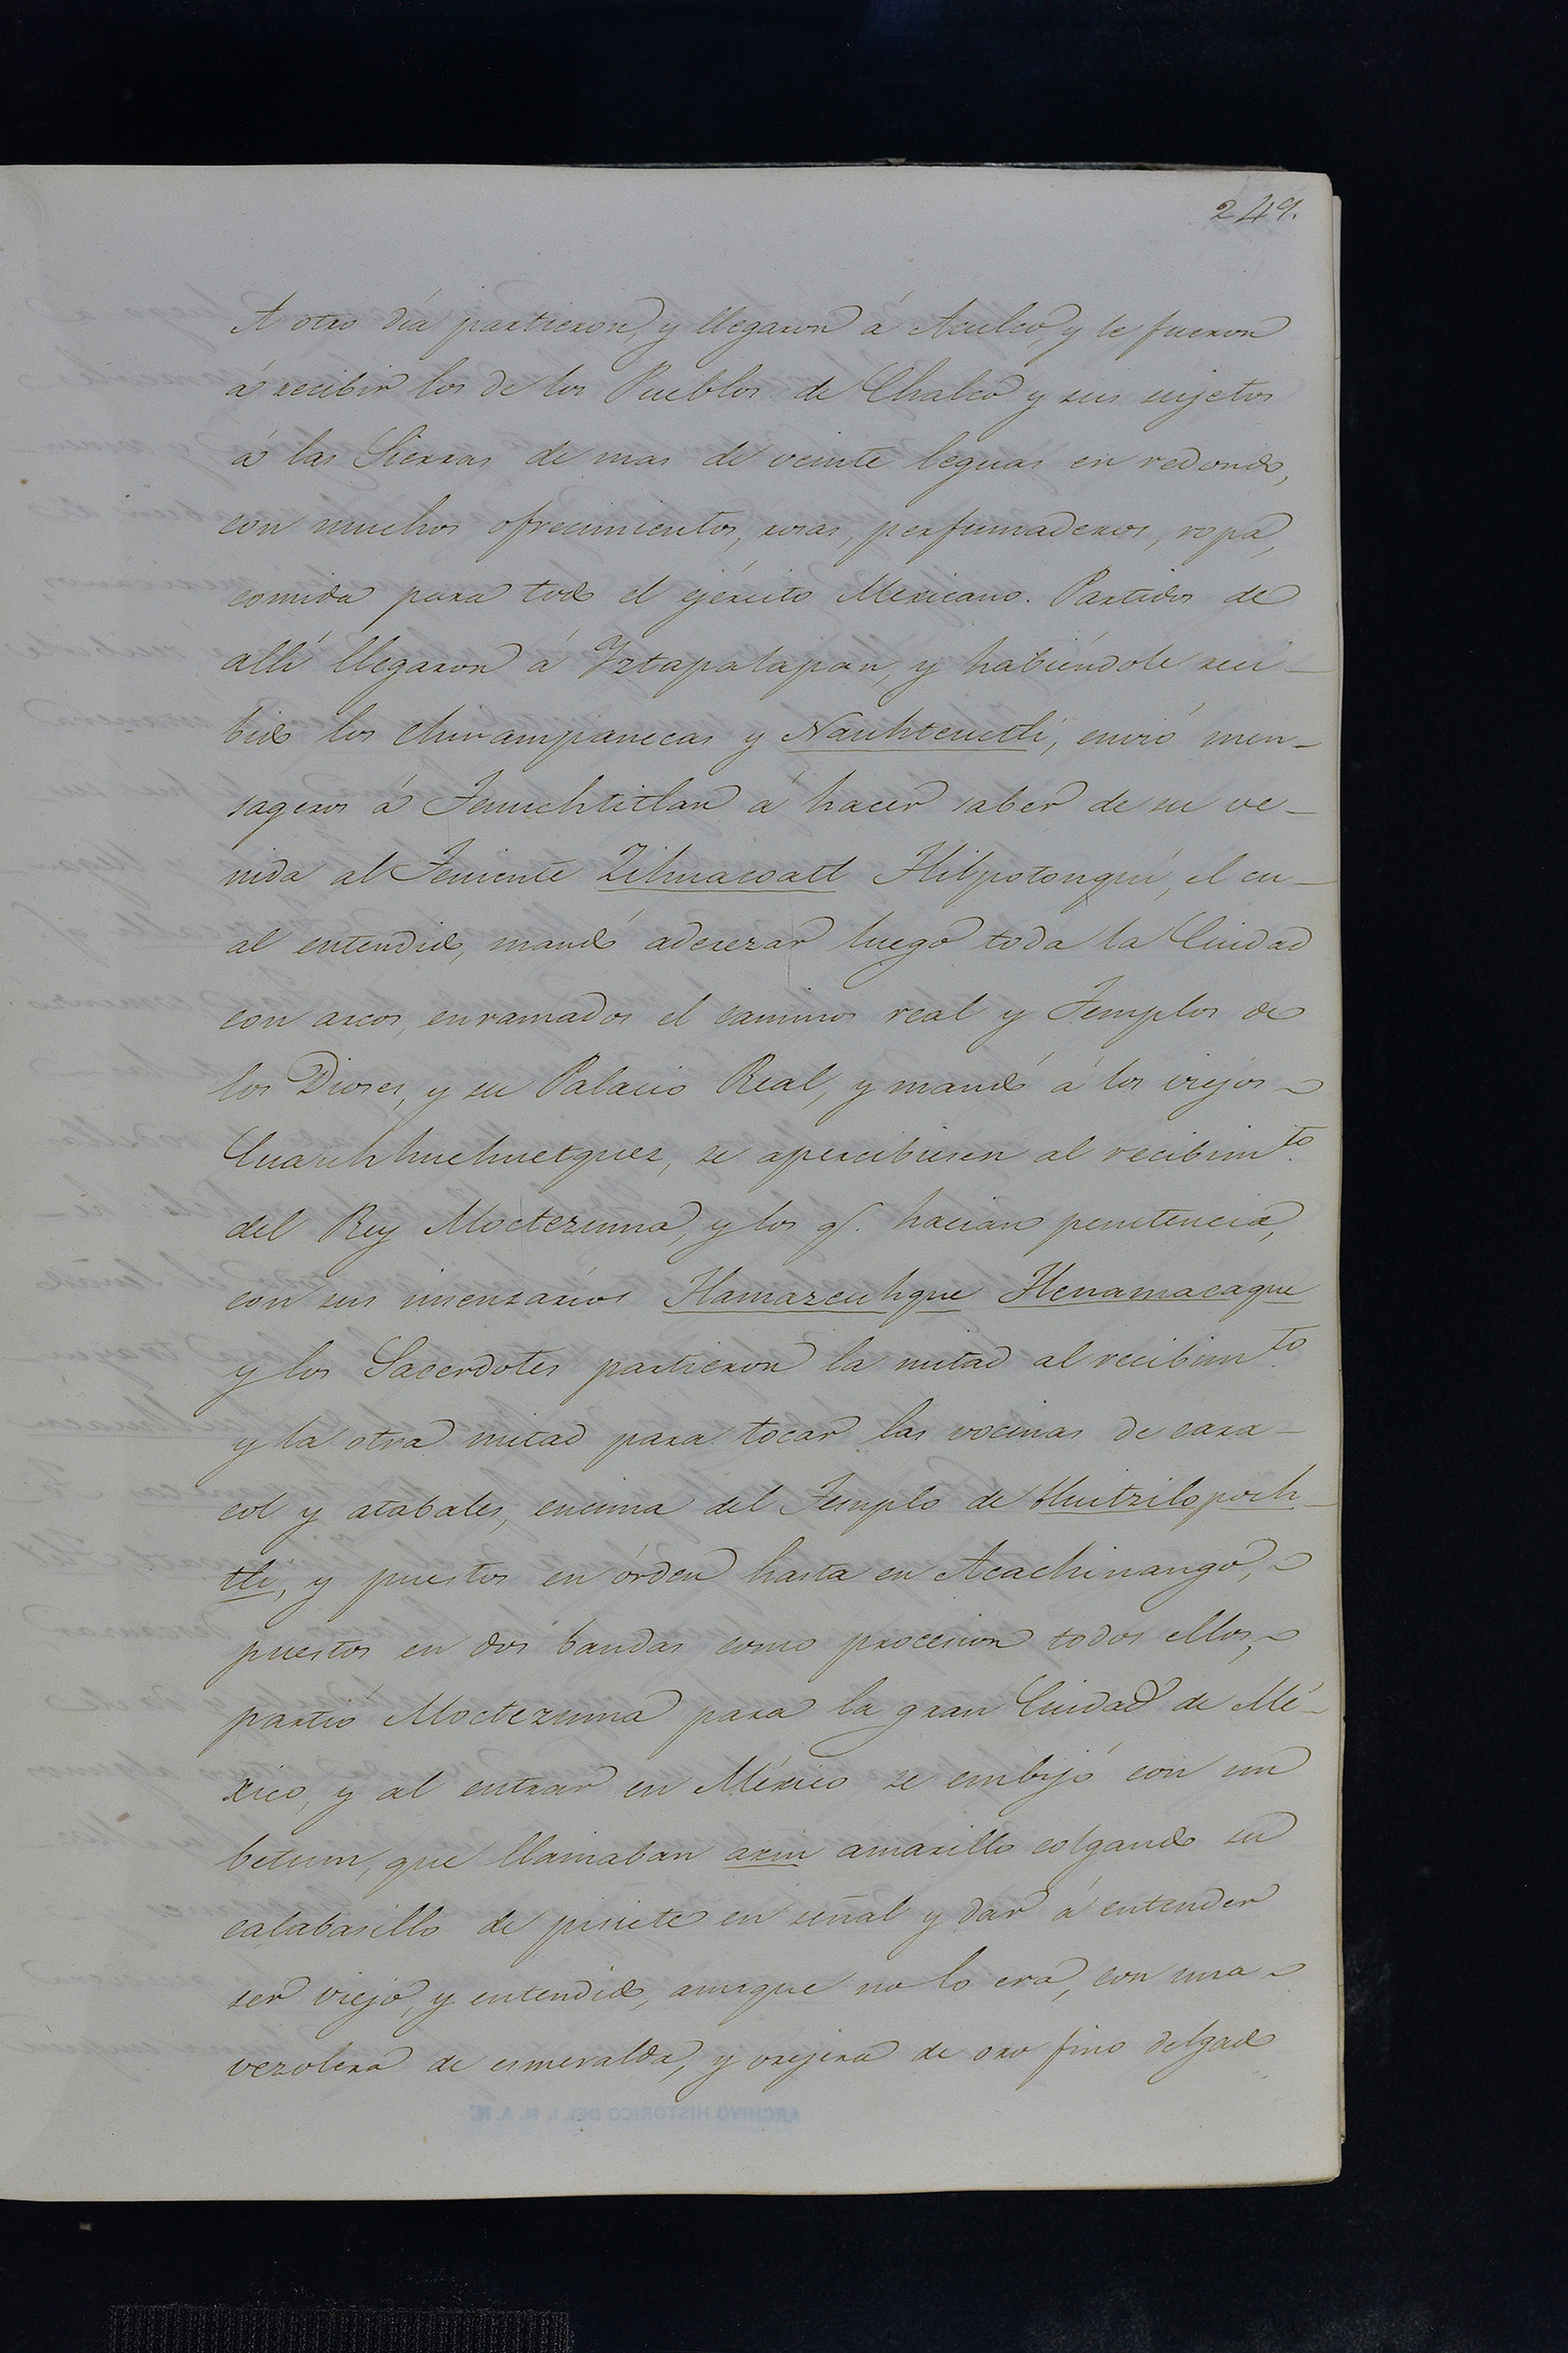 249.
A otro día partieron, y llegaron á Aculco, y le fueron
á recibir los de los Pueblos de Chalco y sus sujetos
á las Sierras de mas de veinte leguas en redondo,
con muchos ofrecimientos, rosas, perfumaderos, ropa,
comida para todo el ejército Mexicano. Partidos de
allí llegaron á Yztapalapan, y habiéndole reci-
bido los chinampanecas y Nauhteuctli, envió men-
sageros á Tenuchtitlan á hacer saber de su ve-
nida al Teniente Zihuacoatl Tlilpotonqui, el cu-
al entendido, mandó aderezar luego toda la Ciudad
con arcos, enramados el caminos real y Templos de
los Dioses, y su Palacio Real, y mandó á los viejos
Cuauhhuehuetques, se apercibiesen al recibim.to
del Rey Moctezuma, y los q. hacian penitencia,
con sus insensarios Tlamazeuhque Tlenamacaque
y los Sacerdotes partieron la mitad al recibim.to
y la otra mitad para tocar las vocinas de cara-
col y atabales, encima del Templo de Huitzilopoch-
tli, y puestos en órden hasta en Acachinango,
puestos en dos bandas como procesion todos ellos,
partió Moctezuma para la gran Ciudad de Mé-
xico, y al entrar en México se embijó con un
betum, que llamaban axin amarillo colgando su
calabasillo de piciete en señal y dar á entender
ser viejo, y entendido, aunque no lo era, con una
vezolera de esmeralda, y orejera de oro fino delgado
ARCHIVO HISTORICO DEL I. N. A. H.